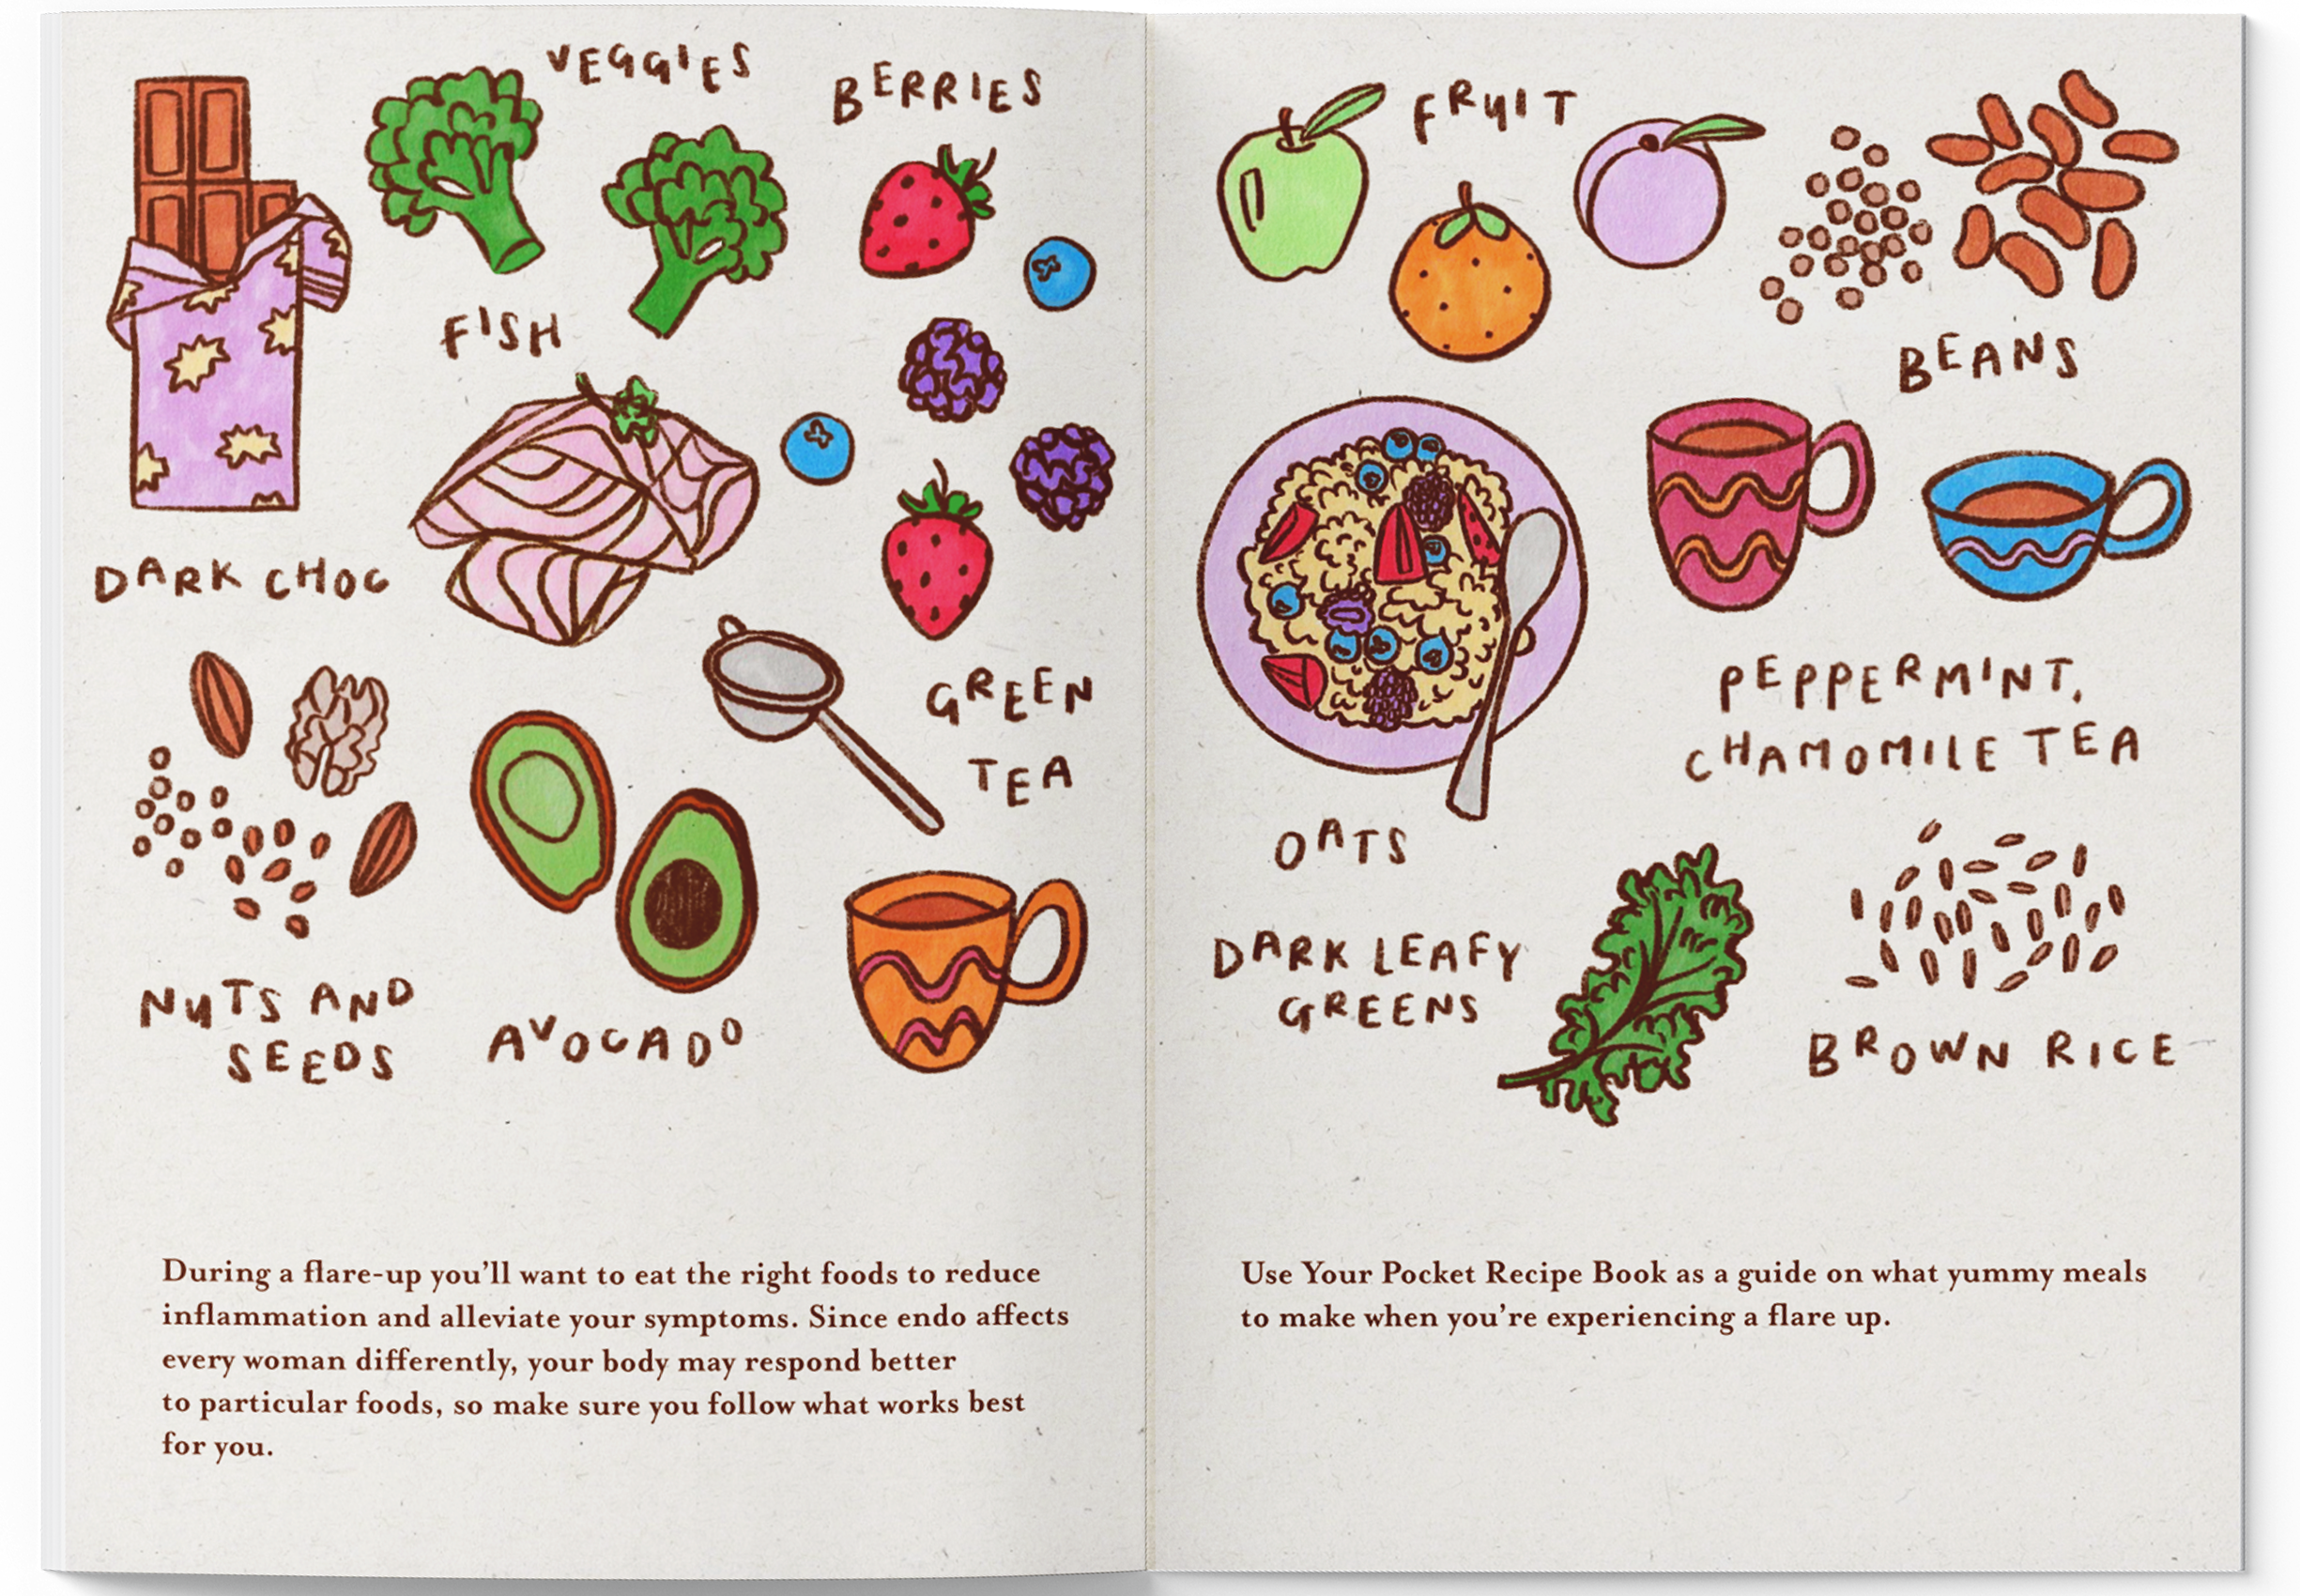 VEGGIES
BERRIES
FISH
DARK CHOC
GREEN
TEA
NUTS AND
SEEDS
AVOCADO
During a flare-up you'll want to eat the right foods to reduce
inflammation and alleviate your symptoms. Since endo affects
every woman differently, your body may respond better
to particular foods, so make sure you follow what works best
for you.
FRUIT
BEANS
PEPPERMINT,
CHAMOMILE TEA
OATS
DARK LEAFY
GREENS
BROWN RICE
Use Your Pocket Recipe Book as a guide on what yummy meals
to make when you're experiencing a flare up.